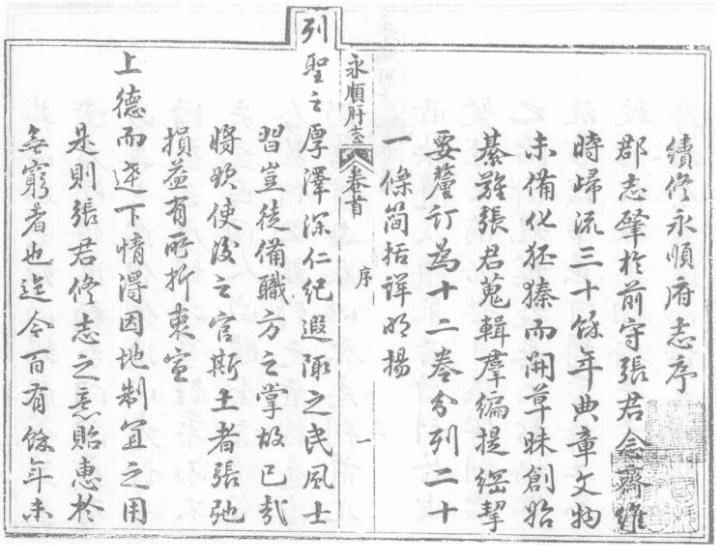 續修永順府志序
郡志肇於前守張君念齋維
時歸流三十餘年典章文物
未備化狉獉而開草昧創始
綦難張君蒐輯羣編提綱挈
要釐訂為十二卷分列二十
一條簡括詳明揚
永順府志 卷首 序 一
列聖之厚澤深仁紀遐陬之民風士
習豈徒備職方之掌故已哉
將欲使後之官斯土者張弛
損益有所折衷宣
上德而達下情得因地制宜之用
是則張君修志之意貽惠於
無窮者也迄今百有餘年未